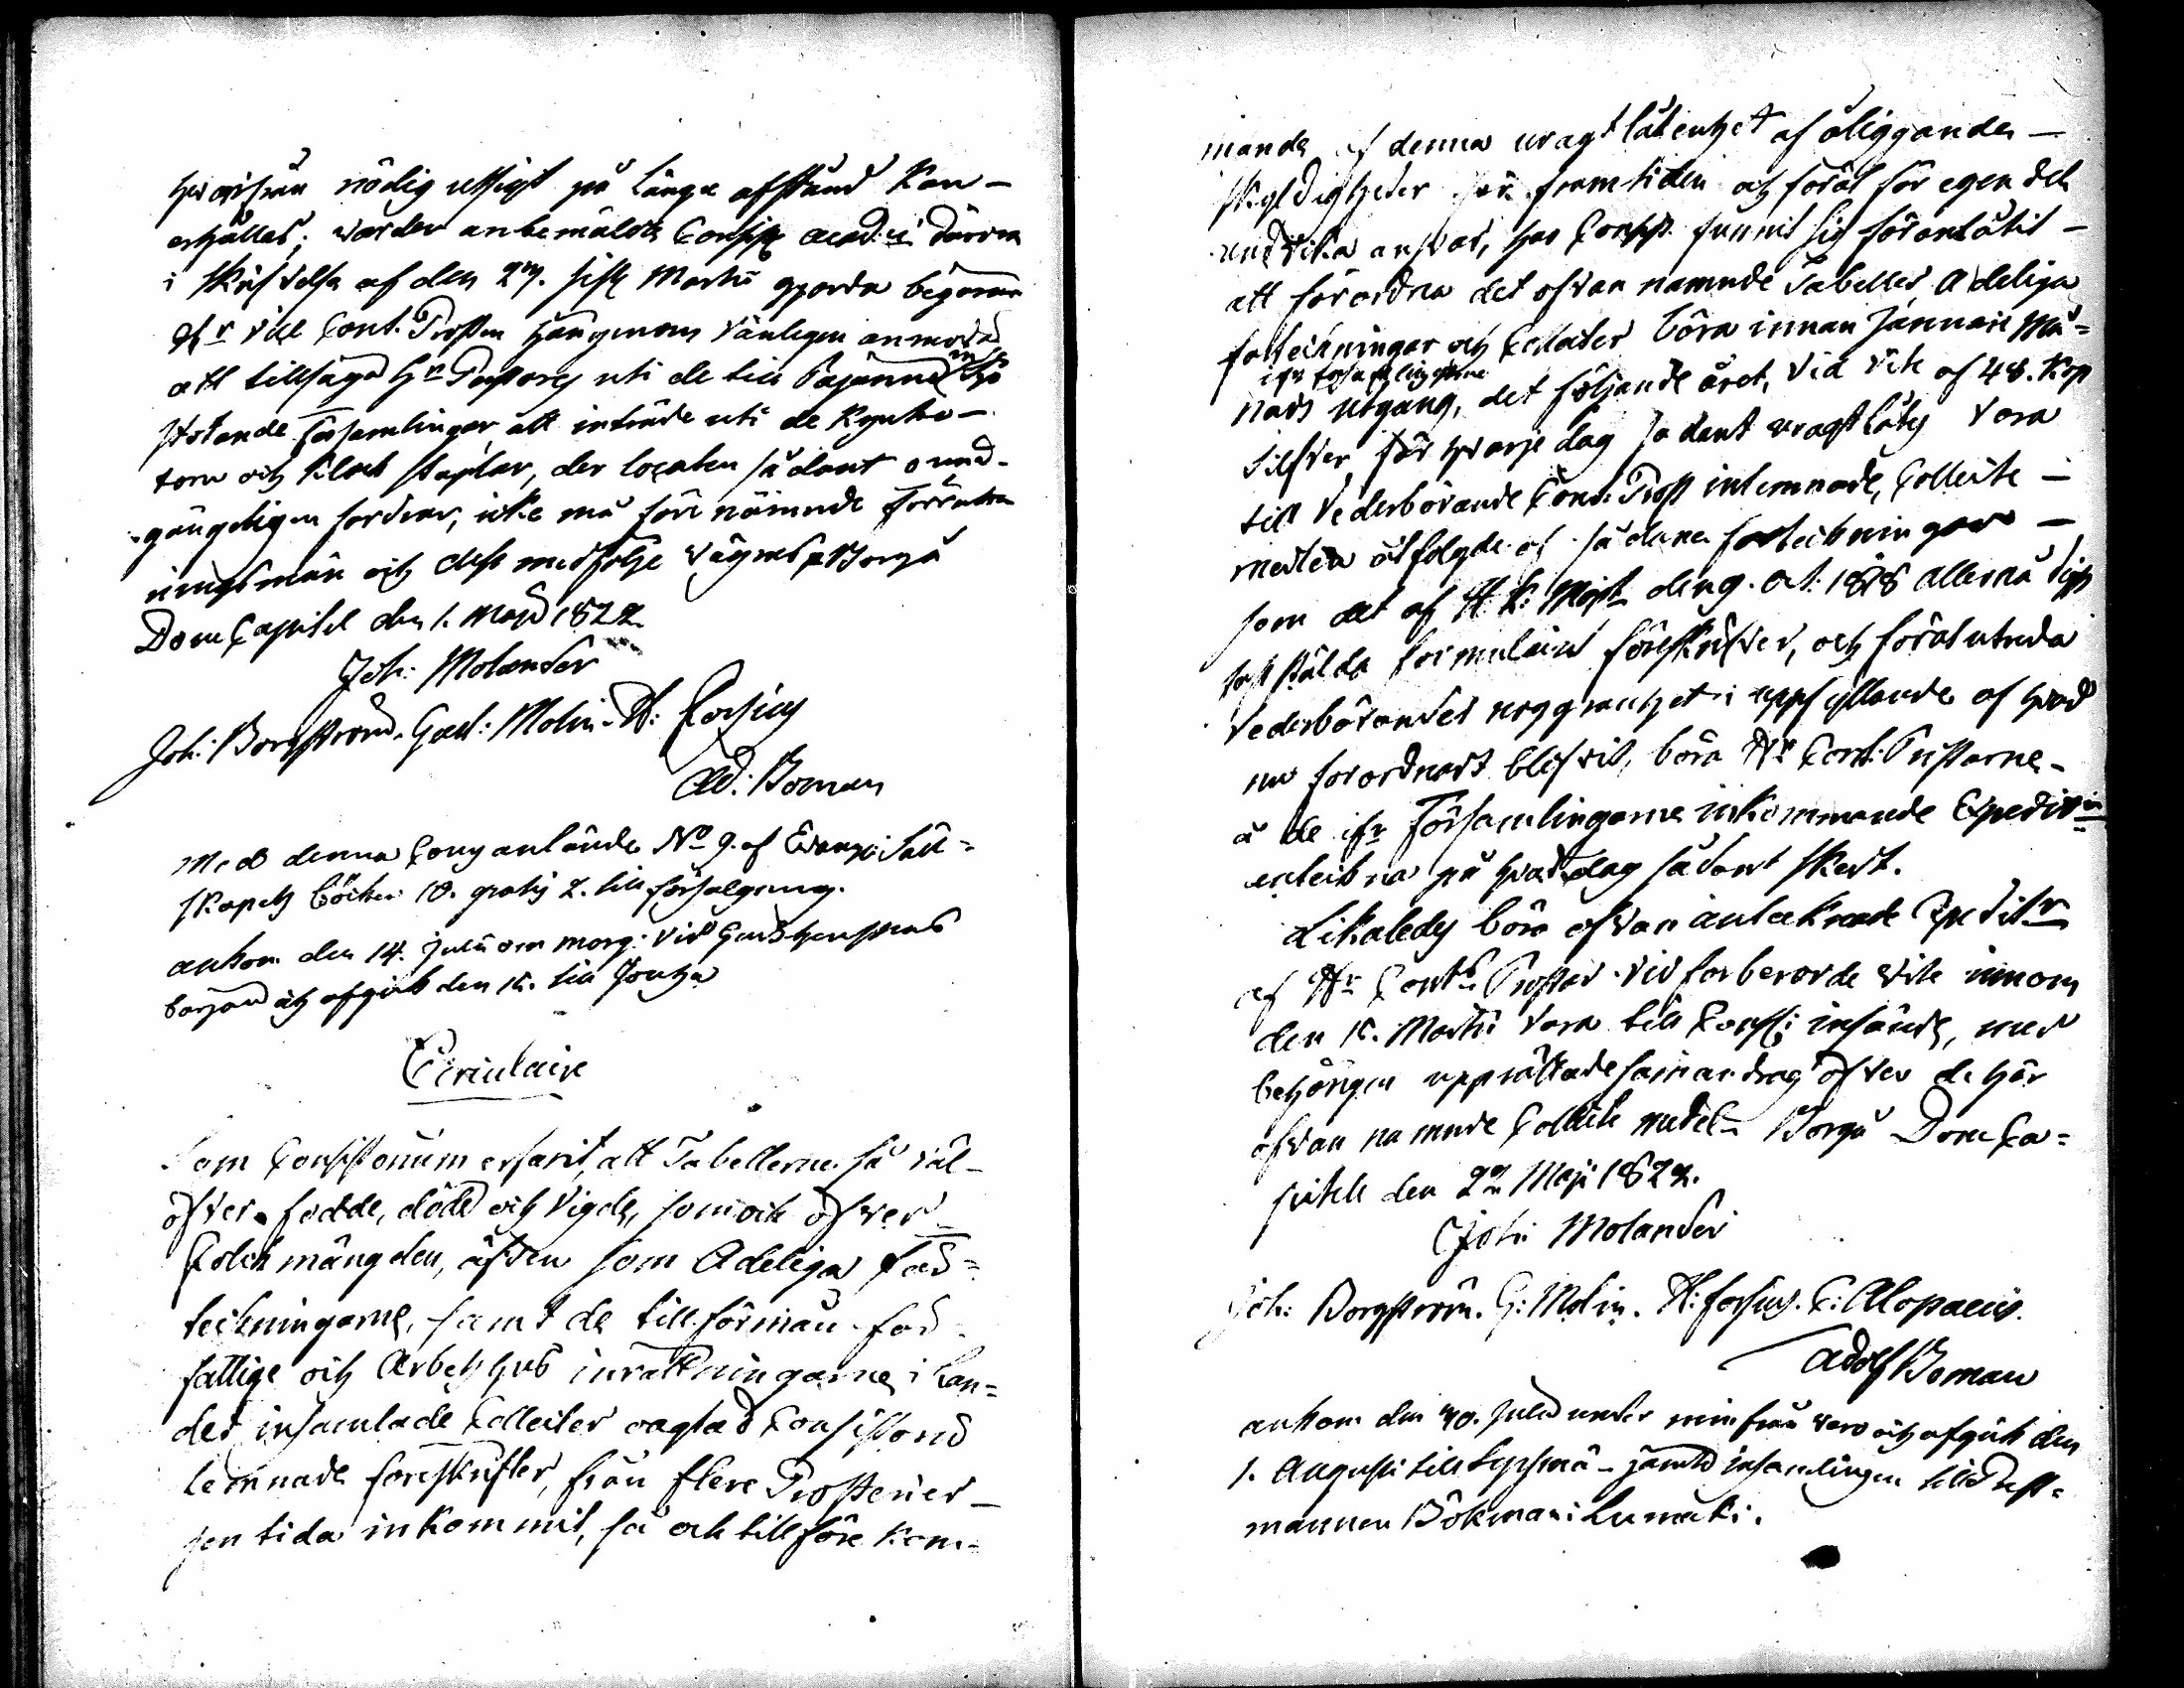 hvarifrån nödig utsigt på långa afstånd kan-
erhålles; warder anbemälde Consist: Acad:i därom
i skrifvelse af den 27. sistl: Martii gjorda begäran
Hr Vice Cont. Prosten härigenom vänligen anmodad
att tillsäga Hr Pastorer uti de till Pajänne Sjö
stötande Församlingar att inträde uti de Kyrko-
torn och Klock staplar, der localen sådant oumd-
gängeligen fordrar, icke må före nämnde förrättn
ningsmän och dess medfölje vägras. Borgå
DomCapitel den 1. Maji 1822
Joh: Molander
Joh: Borgström. Gust: Molin. H: Forsius
Ad: Boman
Med denna Couv anlände No 9. af Evang: Säll-
skapets böcker 10. gratis 2. till försäljning.
ankom den 14. Julii om morg: vid Gudstjenstens
början och afgick den 15. till Joutza
Circulaire
Som Consistorium erfarit, att Tabellerne så väl-
öfver födde, döde och Vigde, som ock öfver
Folckmängden, äfven som Adeliga för-
teckningarne, samt de till förmån för
fattige och Arbetshus inrättningarne i Lan-
det insamlade Collecter oagtadt Consistorii
lemnade föreskrifter, från flere Prosterier-
sen tida inkommit, så och till före kom-
mande af denna uragtlåtenhet af åliggande-
skyldigheter för framtiden och föröl för egen del
undvika ansvar, har Consist. funnit sig föranlåtit-
att förordna det ofvan nämnde Tabeller Adeliga
förteckningar och Collecter böra innan Januarii må-
ifrån Församlingarne
nads utgång, det följande året, vid vite af 48. Kop
Silfver för hvarje dag sådant uragtlåtes vara
till Vederbörande Cont. Prost inlemnade, Collecte-
medlen åtfölgde af sådana förteckningar-
som det af H. K: Majt den 9. Oct: 1818 allernådigst
fastställda formulairet föreskrifver, och för at utröda
Vederbörandes noggranhet i uppfyllande af hvad
nu förordnadt blifvit, böra Hr Cont: Prostarne-
å de ifr Församlingarne inkommande Expedition
anteckna på hvad dag sådant skedt.
Likaledes böra ofvan antecknade Expeditr
af Hr Conts Prostar vid förberörde vite innom
den 15. Martii vara till Consist: insände, med
behörigen upprättade sammandrag öfver de här
ofvan nämnde Collecte medel. Borgå DomCa-
pitel den 22 Maji 1822.
Joh: Molander
Joh: Borgström. G: Molin. H: Forsius. C: Alopaeus.
Adolf Boman
ankom den 30. Julii under min från varo och afgick den
1. Augusti till Sysmä - jämte insamlingen till Prost-
mannen Bökman i Lumäki.